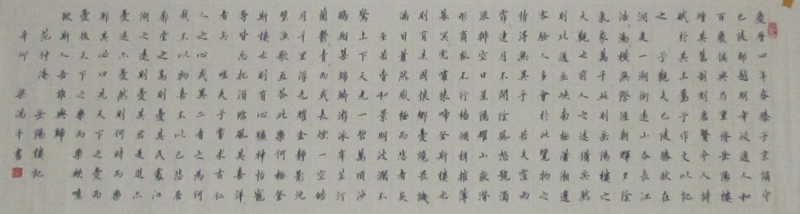 慶曆四年春滕子京謫守
巴陵郡越明年政通人和
百廢俱興乃重修岳陽樓
增其舊制刻唐賢今人詩
賦於其上屬予作文以記
之 予觀夫巴陵勝狀在
洞庭一湖銜遠山吞長江
浩浩湯湯橫無際涯朝暉夕陰
氣象萬千此則岳陽樓之
大觀也前人之述備矣然
則北通巫峽南極瀟湘遷
客騷人多會於此覽物之
情得無異乎 若夫霪雨
霏霏連月不開陰風怒號濁
浪排空日星隱耀山岳潛
形商旅不行檣傾楫摧薄
暮冥冥虎嘯猿啼登斯樓也
則有去國懷鄉憂讒畏譏
滿目蕭然感極而悲者矣
至若春和景明波瀾不
驚上下天光一碧萬頃沙
鷗翔集錦鱗游泳岸芷汀
蘭郁郁青青而或長煙一空皓
月千里浮光耀金靜影沈
璧漁歌互答此樂何極登
斯樓也則有心曠神怡寵
辱皆忘把酒臨風其喜洋洋
者矣 嗟夫予嘗求古仁
人之心或異二者之為何
哉不以物喜不以己悲居
廟堂之高則憂其民處江
湖之遠則憂其君是進亦
憂退亦憂然則何時而樂
耶其必曰先天下之憂而
憂後天下之樂而樂歟噫
微斯人吾誰與歸
范仲淹 岳陽樓記
辛卯 梁滿平書